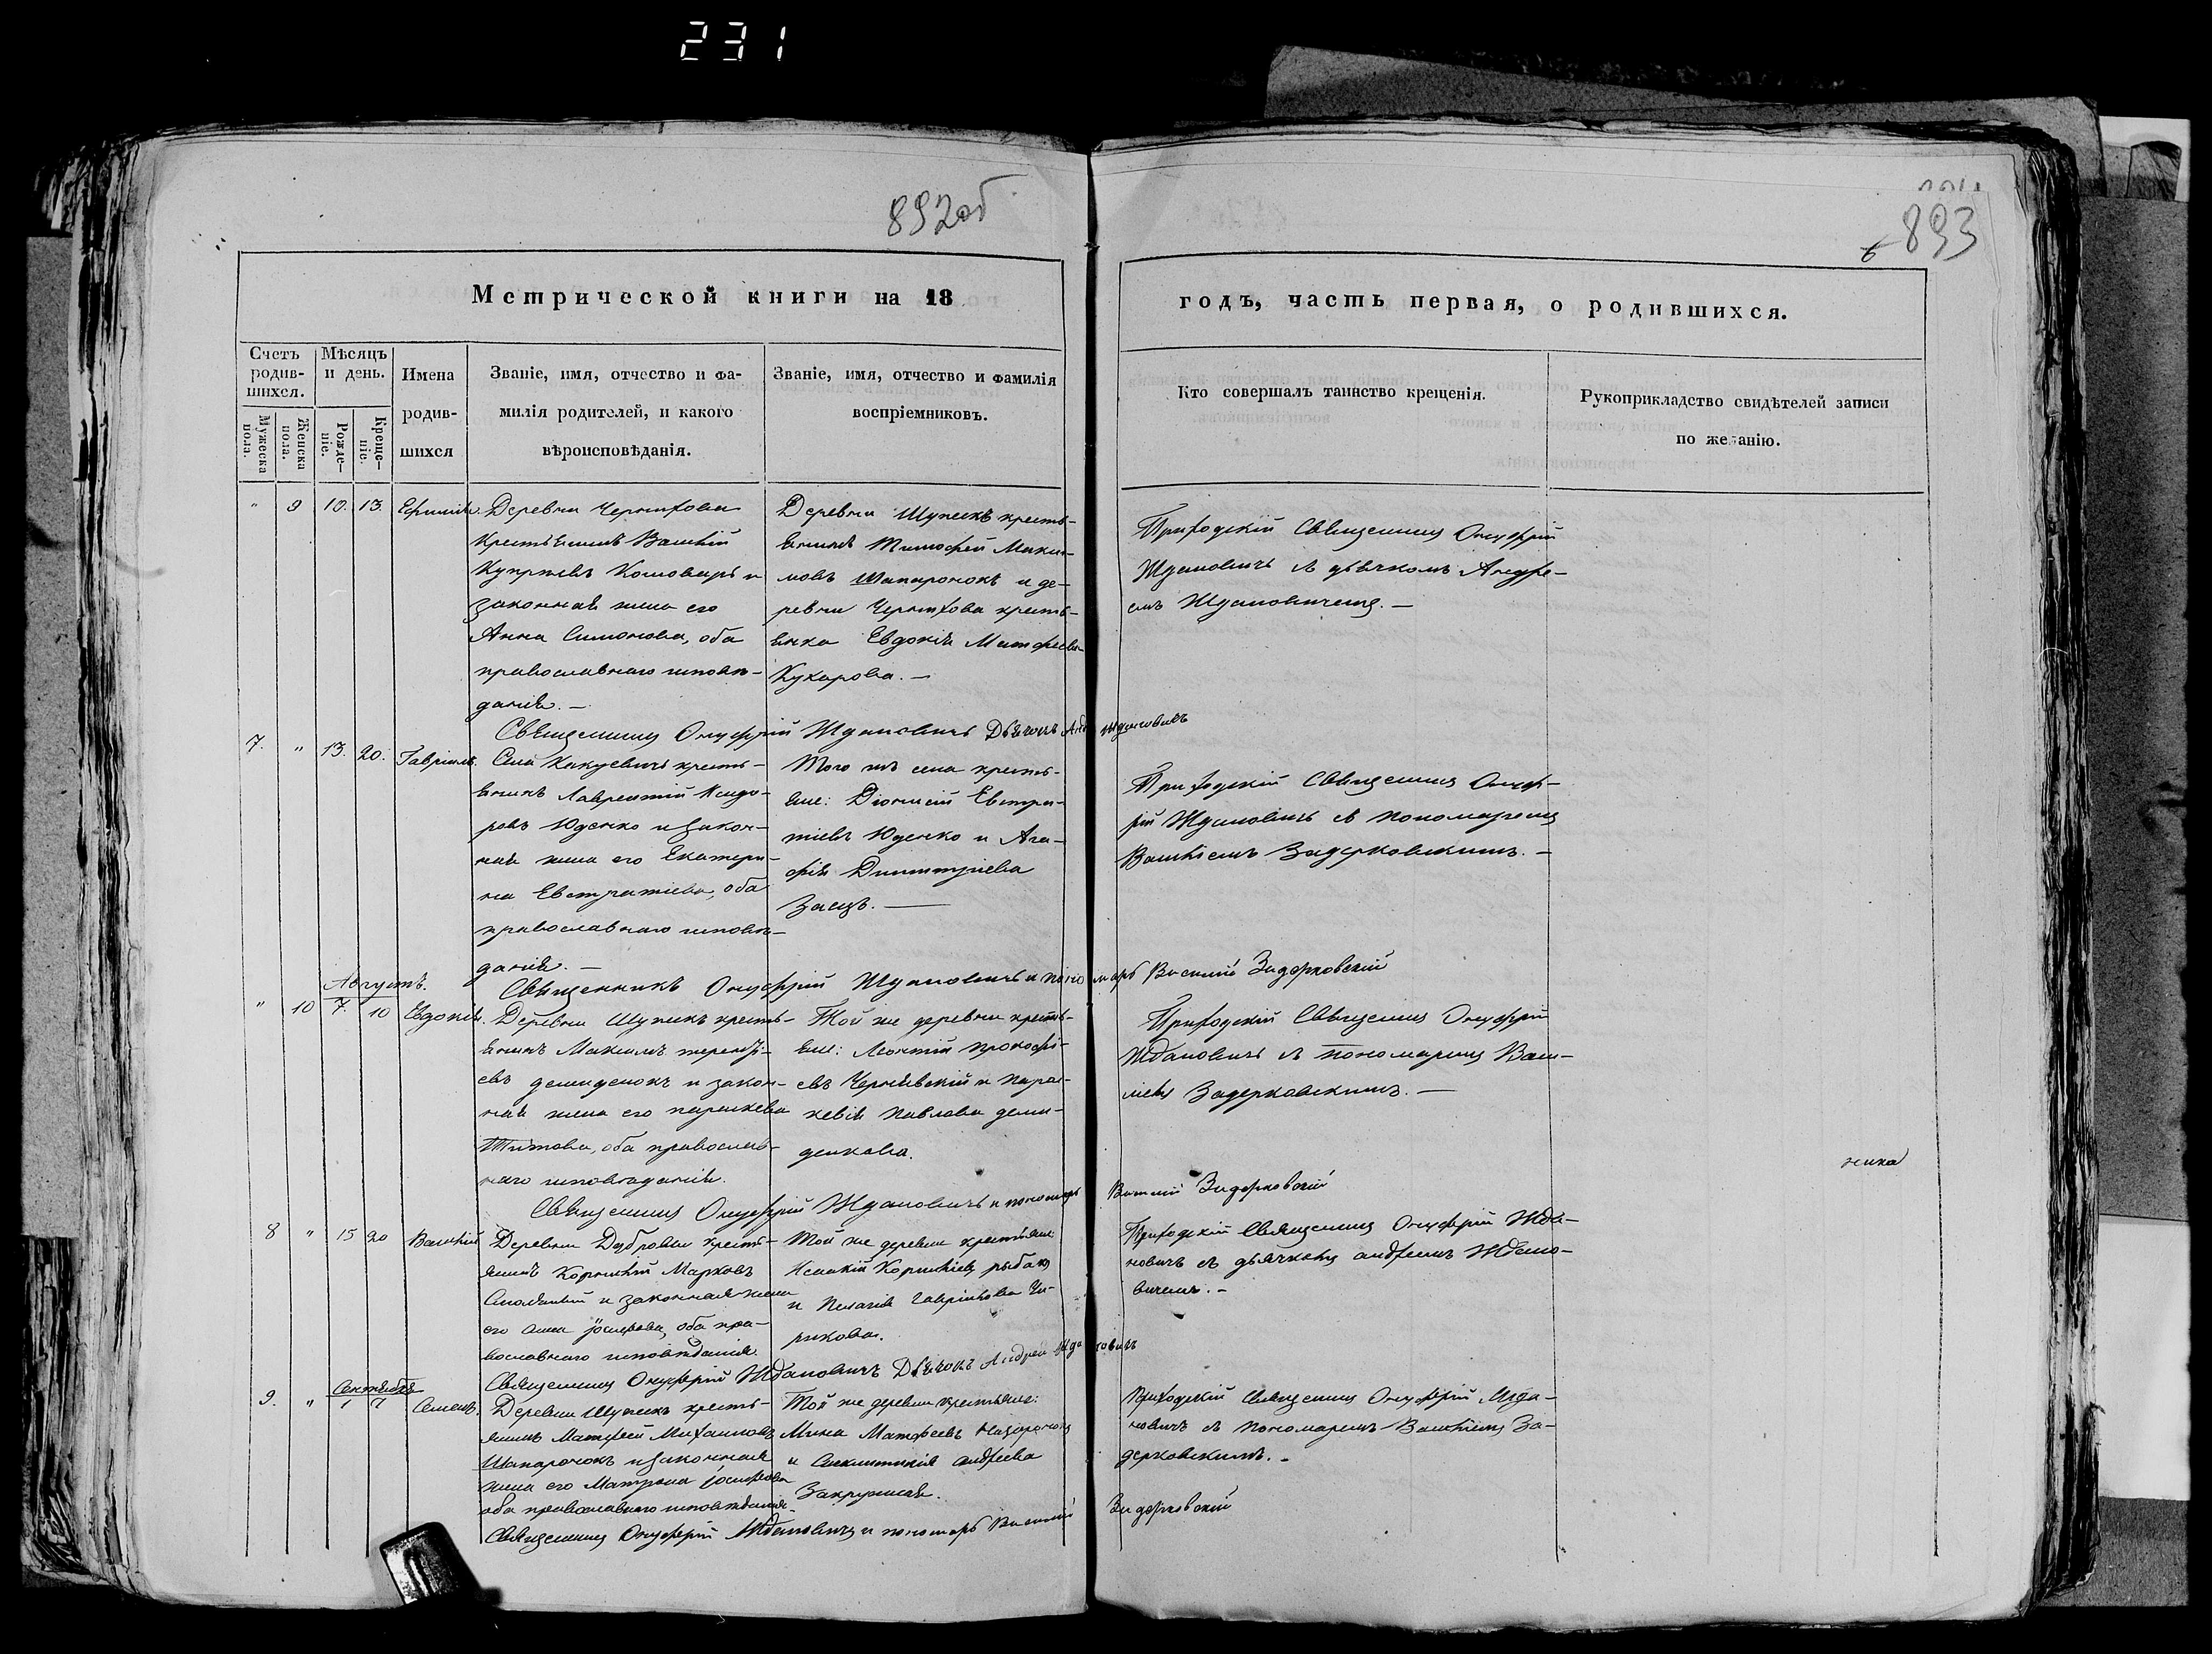 231
892об
893
Метрической книги на 18
годъ, часть первая, о родившихся.
Счетъ родив-шихся.
Мѣсяцъ и день.
Имена родив-шихся
Званіе, имя, отчество и фа-
милія родителей, и какого
вѣроисповѣданія.
Званіе, имя, отчество и фамилія
воспріемниковъ.
Кто совершалъ таинство крещенія.
Рукоприкладство свидѣтелей записи
по желанію.
Мужеска пола.
Женска пола.
Рожде-ніе.
Креще-ніе.
" 9 10. 13.
Деревни
крестьянинъ Василій
и
законная жена его
Анна Симонова, оба
православнаго исповѣ-
данія. —
Деревни кресть-
янинъ Тимофей Макси-
мовъ Шапаронокъ и де-
ревни кресть-
янка Евдокія Матфеева
Кухарова. —
Приходскій Священникъ Онуфрій
Ждановичъ съ дьячкомъ Андре-
емъ Ждановичемъ. —
Священникъ Онуфрій Ждановичъ Дьячокъ Андрей Ждановичъ
7. " 13. 20. Гавріилъ.
Села кресть-
янинъ Лаврентій Исидо-
ровъ Юденко и закон-
ная жена его Екатери-
на Евстратіева, оба
православнаго исповѣ-
данія. —
Того же села кресть-
яне: Діонисій Евстра-
тіевъ Юденко и Ага-
фія Димитріева
Заецъ. —
Приходскій Священникъ Онуф-
рій Ждановичъ съ пономаремъ
Василіемъ Задерковскимъ. —
Священникъ Онуфрій Ждановичъ и пономарь Василій Задерковскій
Августъ.
" 10 7. 10 Евдокія.
Деревни кресть-
янинъ Максимъ Теренті-
евъ Демиденокъ и закон-
ная жена его Параскева
Титова, оба православ-
наго исповѣданія.
Той же деревни кресть-
яне: Леонтій Прокофі-
евъ Чернявскій и Парас-
кевія Павлова Деми-
денкова.
Приходскій Священникъ Онуфрій
Ждановичъ съ пономаремъ Васи-
ліемъ Задерковскимъ. —
Священникъ Онуфрій Ждановичъ и пономарь Василій Задерковскій
8 " 15 20 Василій
Деревни Дубровки кресть-
янинъ Корнилій Марковъ
и законная жена
его Анна Іосифова, оба пра-
вославнаго исповѣданія.
Той же деревни крестьяне
Исаакій Корниліевъ
и Пелагія Гавріилова
Приходскій Священникъ Онуфрій Жда-
новичъ съ дьячкомъ Андреемъ Ждано-
вичемъ. —
Священникъ Онуфрій Ждановичъ Дьячокъ Андрей Ждановичъ
Сентябрь
9. " 1 7 Семенъ.
Деревни кресть-
янинъ Матфей Михаиловъ
Шапаронокъ и законная
жена его Матрона Іосифова
оба православнаго исповѣданія.
Той же деревни крестьяне:
Мина Матфеевъ
и Синклитикія Андреева
Приходскій Священникъ Онуфрій Жда-
новичъ съ пономаремъ Василіемъ За-
дерковскимъ. —
Священникъ Онуфрій Ждановичъ и пономарь Василій Задерковскій